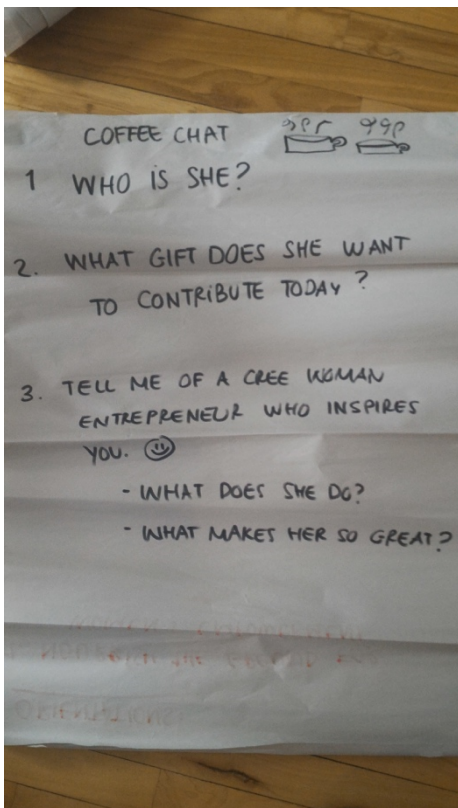 COFFEE CHAT
1 WHO IS SHE?
2. WHAT GIFT DOES SHE WANT
TO CONTRIBUTE TODAY?
3. TELL ME OF A CREE WOMAN
ENTREPRENEUR WHO INSPIRES
YOU. ☺
- WHAT DOES SHE DO?
- WHAT MAKES HER SO GREAT?